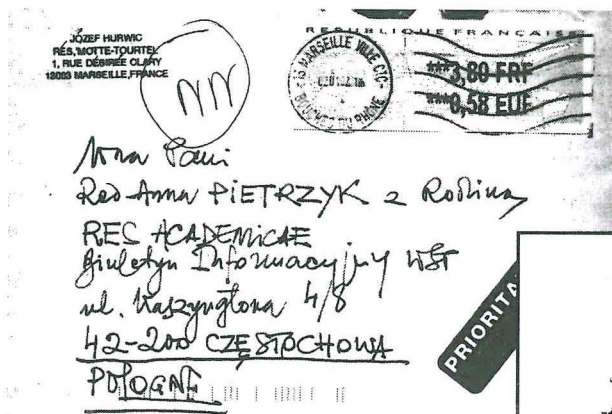 JÓZEF HURWIC
RÉS. MOTTE-TOURTEL
1, RUE DÉSIRÉE CLARY
13003 MARSEILLE, FRANCE
REPUBLIQUE FRANCAISE
MARSEILLE VILLE CTC
BOUCHES DU RHONE
***3,80 FRF
***0,58 EUR
Pani
Red. Anna PIETRZYK z Rodziną
RES ACADEMICAE
Biuletyn Informacyjny WSP
ul. Waszyngtona 4/8
42-200 CZĘSTOCHOWA
POLOGNE
PRIORITA